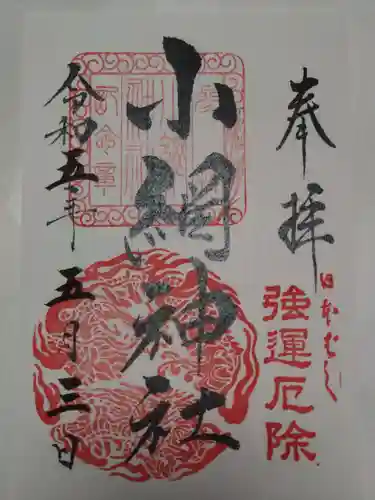 奉拝
日本ばし
強運厄除
小網神社
令和五年五月三日